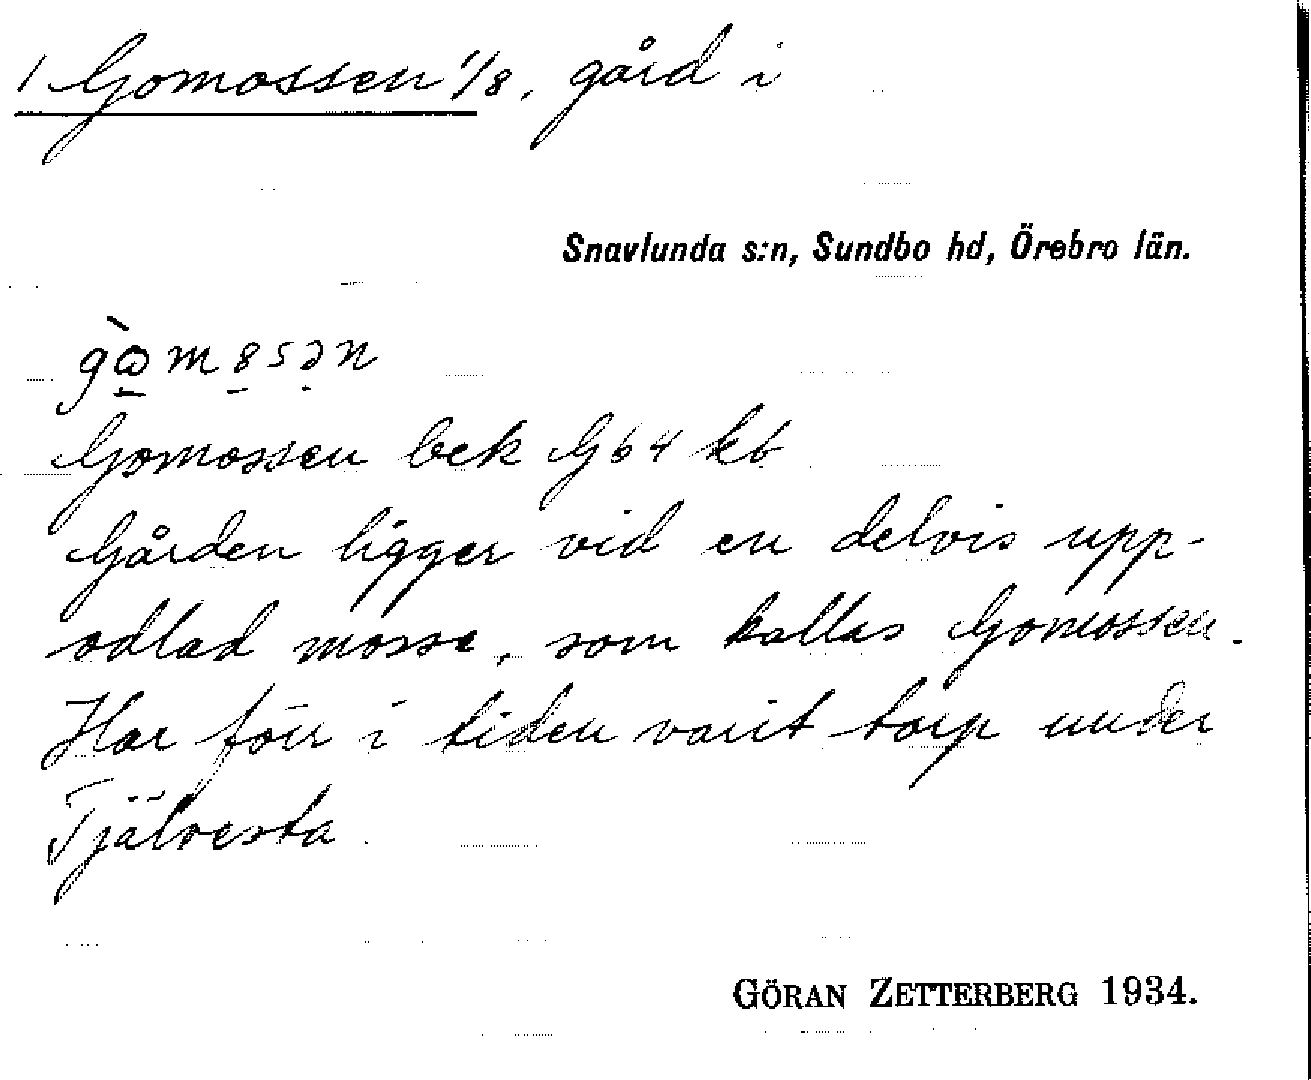 1 Gomossen 1/8, gård i
Snavlunda s:n, Sundbo hd, Örebro län.
gꞷ̀m8sən
Gomossen bek G64 kb
Gården ligger vid en delvis upp-
odlad mosse, som kallas Gomossen.
Har förr i tiden varit torp under
Tjälvesta.
GÖRAN ZETTERBERG 1934.